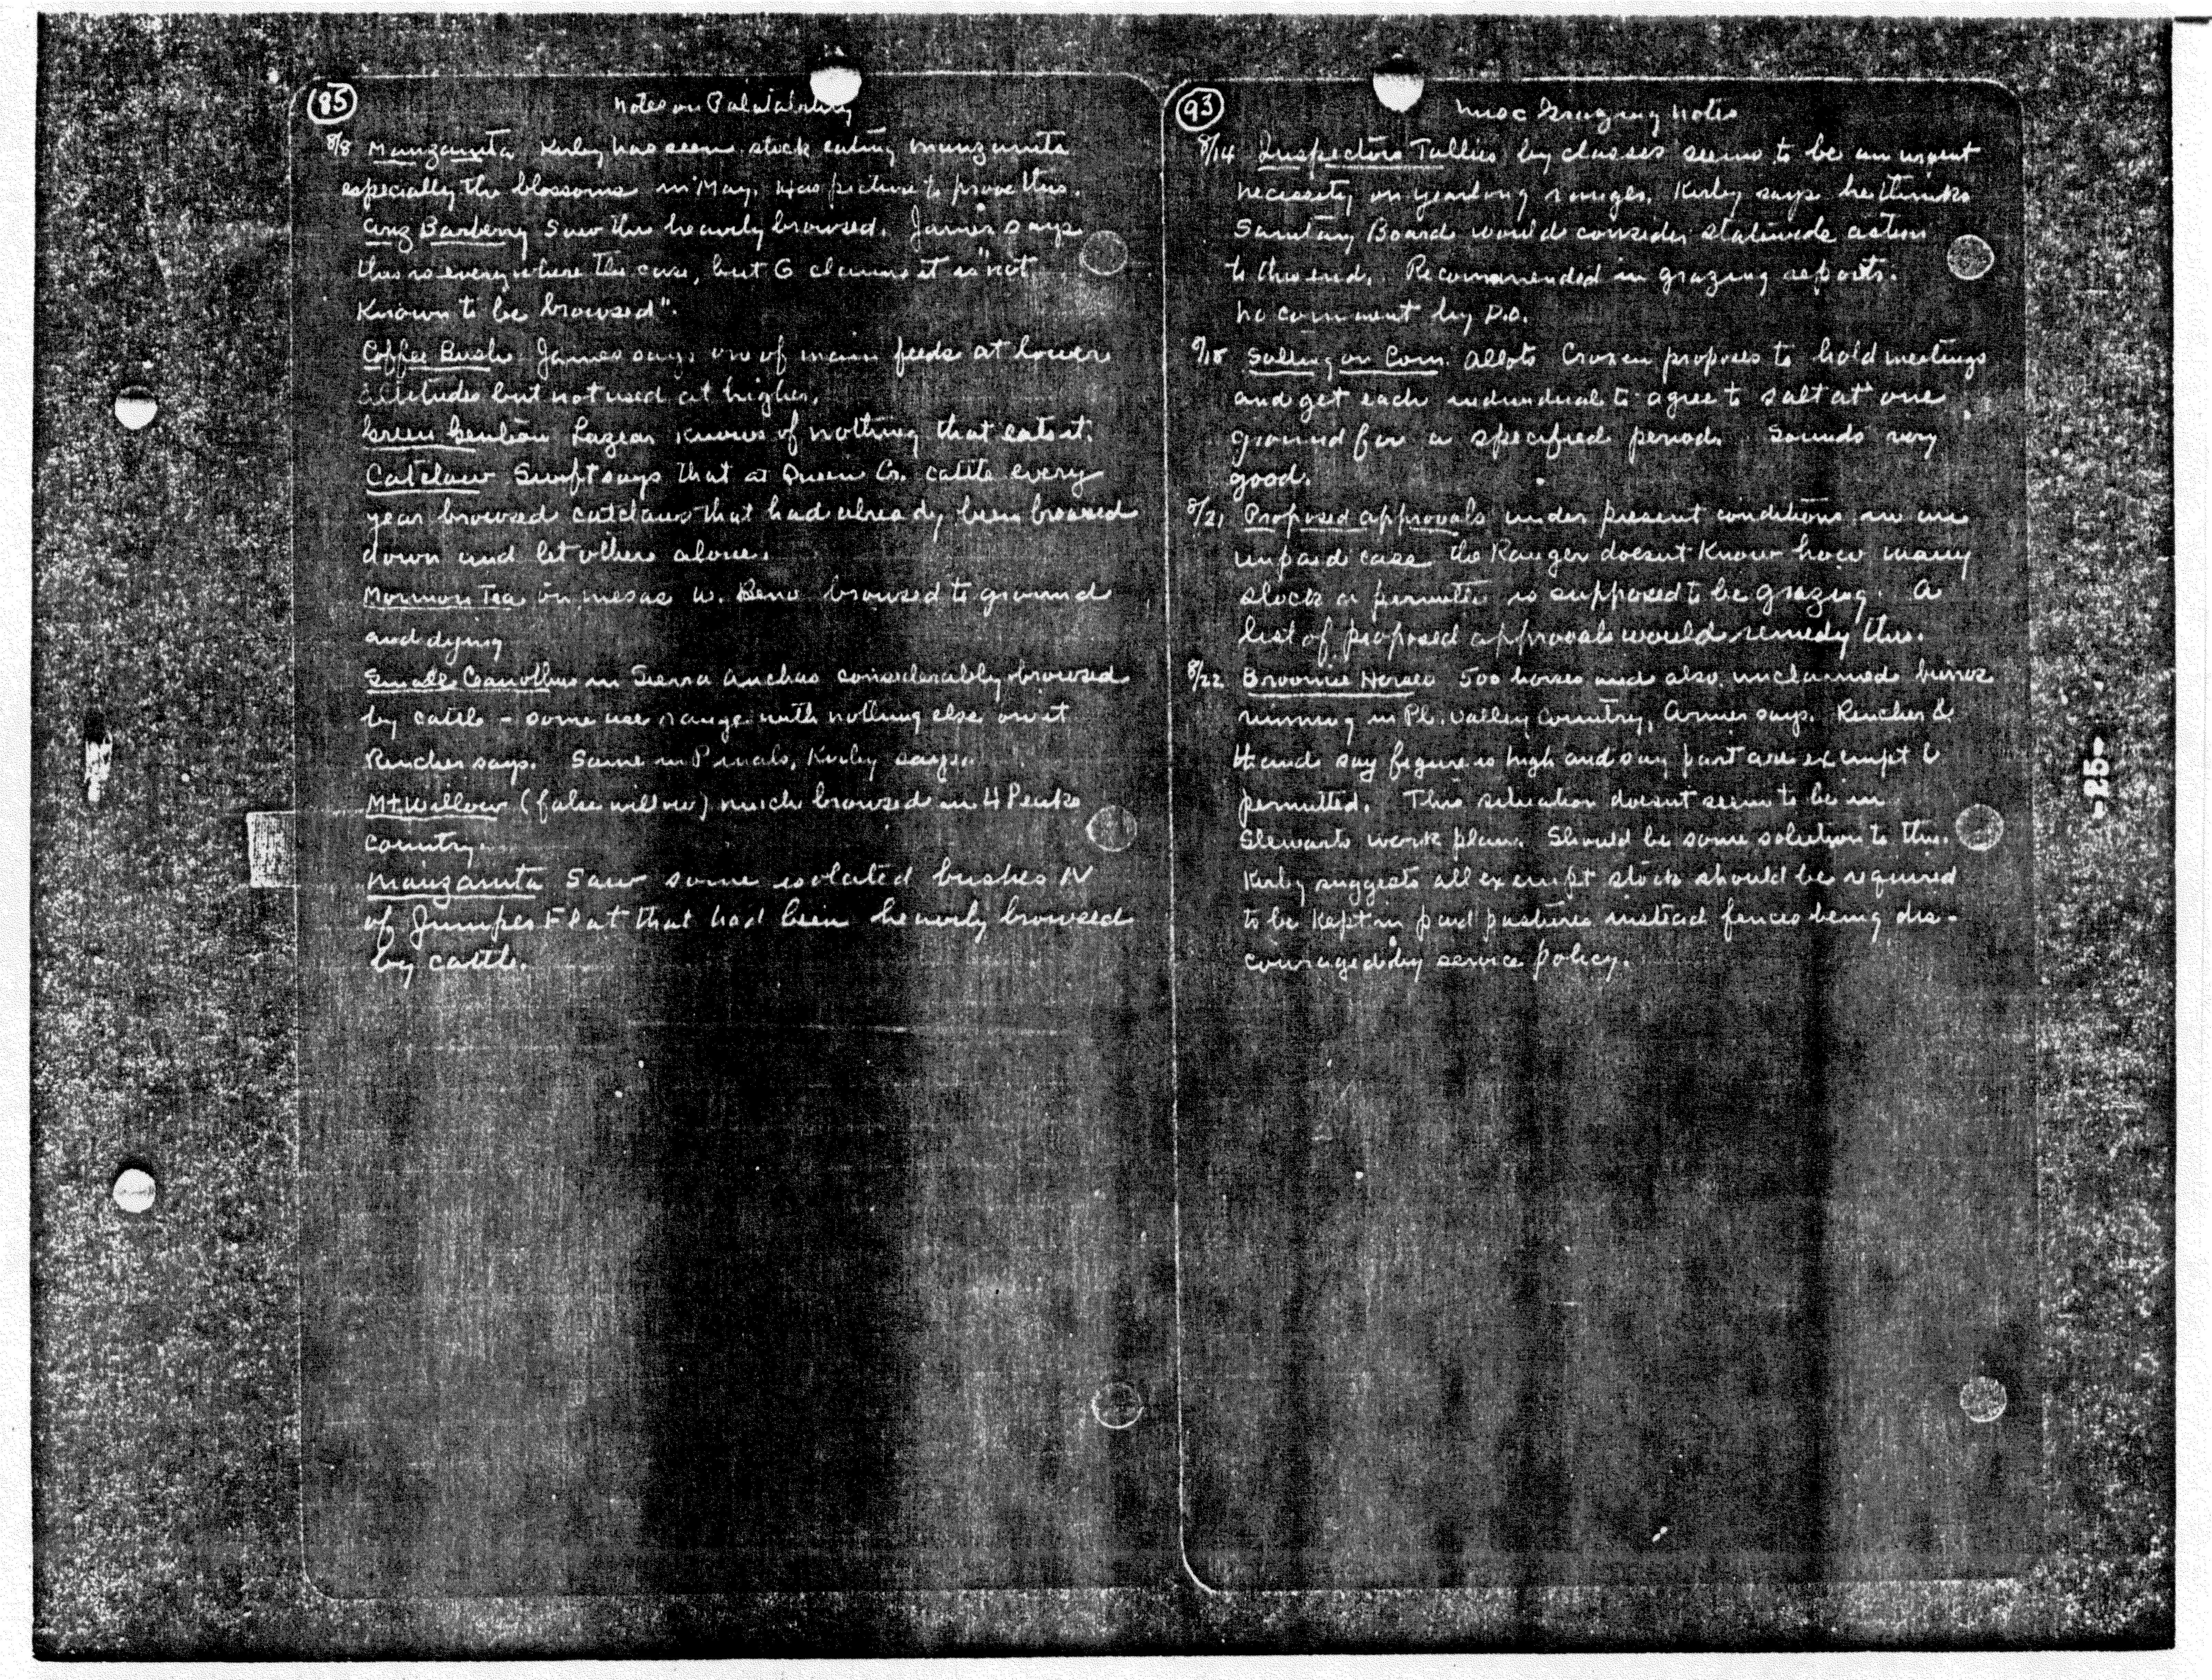 85
Notes on Palatability
8/8 Manzanita Kirby has seen stock eating manzanita
especially the blossoms in May. Has picture to prove this.
Ariz Barberry Saw this heavily browsed. James says
this is everywhere the case, but G claims it is "not
known to be browsed".
Coffee Bush James says one of main feeds at lower
altitudes but not used at higher.
Green Gentian Lazear knows of nothing that eats it.
Catclaw Swift says that at Queen Cr. cattle every
year browsed catclaws that had already been browsed
down and let others alone.
Mormon Tea on mesas w. Reno browsed to ground
and dying
Small Ceanothus in Sierra Anchas considerably browsed
by cattle - some use range with nothing else on it
Rencher says. Same in Pinals, Kirby says.
Mt. Willow (false willow) much browsed in 4 Peaks
Country.
Manzanita Saw some isolated bushes N
of Flat that had been heavily browsed
by cattle.
93
Misc Grazing Notes
8/14 Inspectors Tallies by classes seems to be an urgent
necessity on yearlong ranges. Kirby says he thinks
Sanitary Board would consider statewide action
to this end. Recommended in grazing reports.
No comment by D.O.
8/18 Salting on Com. allots Croxen proposes to hold meetings
and get each individual to agree to salt at one
ground for a specified period. Sounds very
good.
8/21 Proposed approvals under present conditions in an
unpaid case the Ranger doesnt know how many
stock a permittee is supposed to be grazing. A
list of proposed approvals would remedy this.
8/22 Broomie Horses 500 horses and also unclaimed burros
running in Pl. Valley Country, Armer says. Rencher &
Hand say figure is high and say part are exempt &
permitted. This situation doesnt seem to be in
Stewarts work plan. Should be some solution to this.
Kirby suggests all exempt stock should be required
to be kept in paid pastures instead fences being dis-
couraged by service policy.
-25-